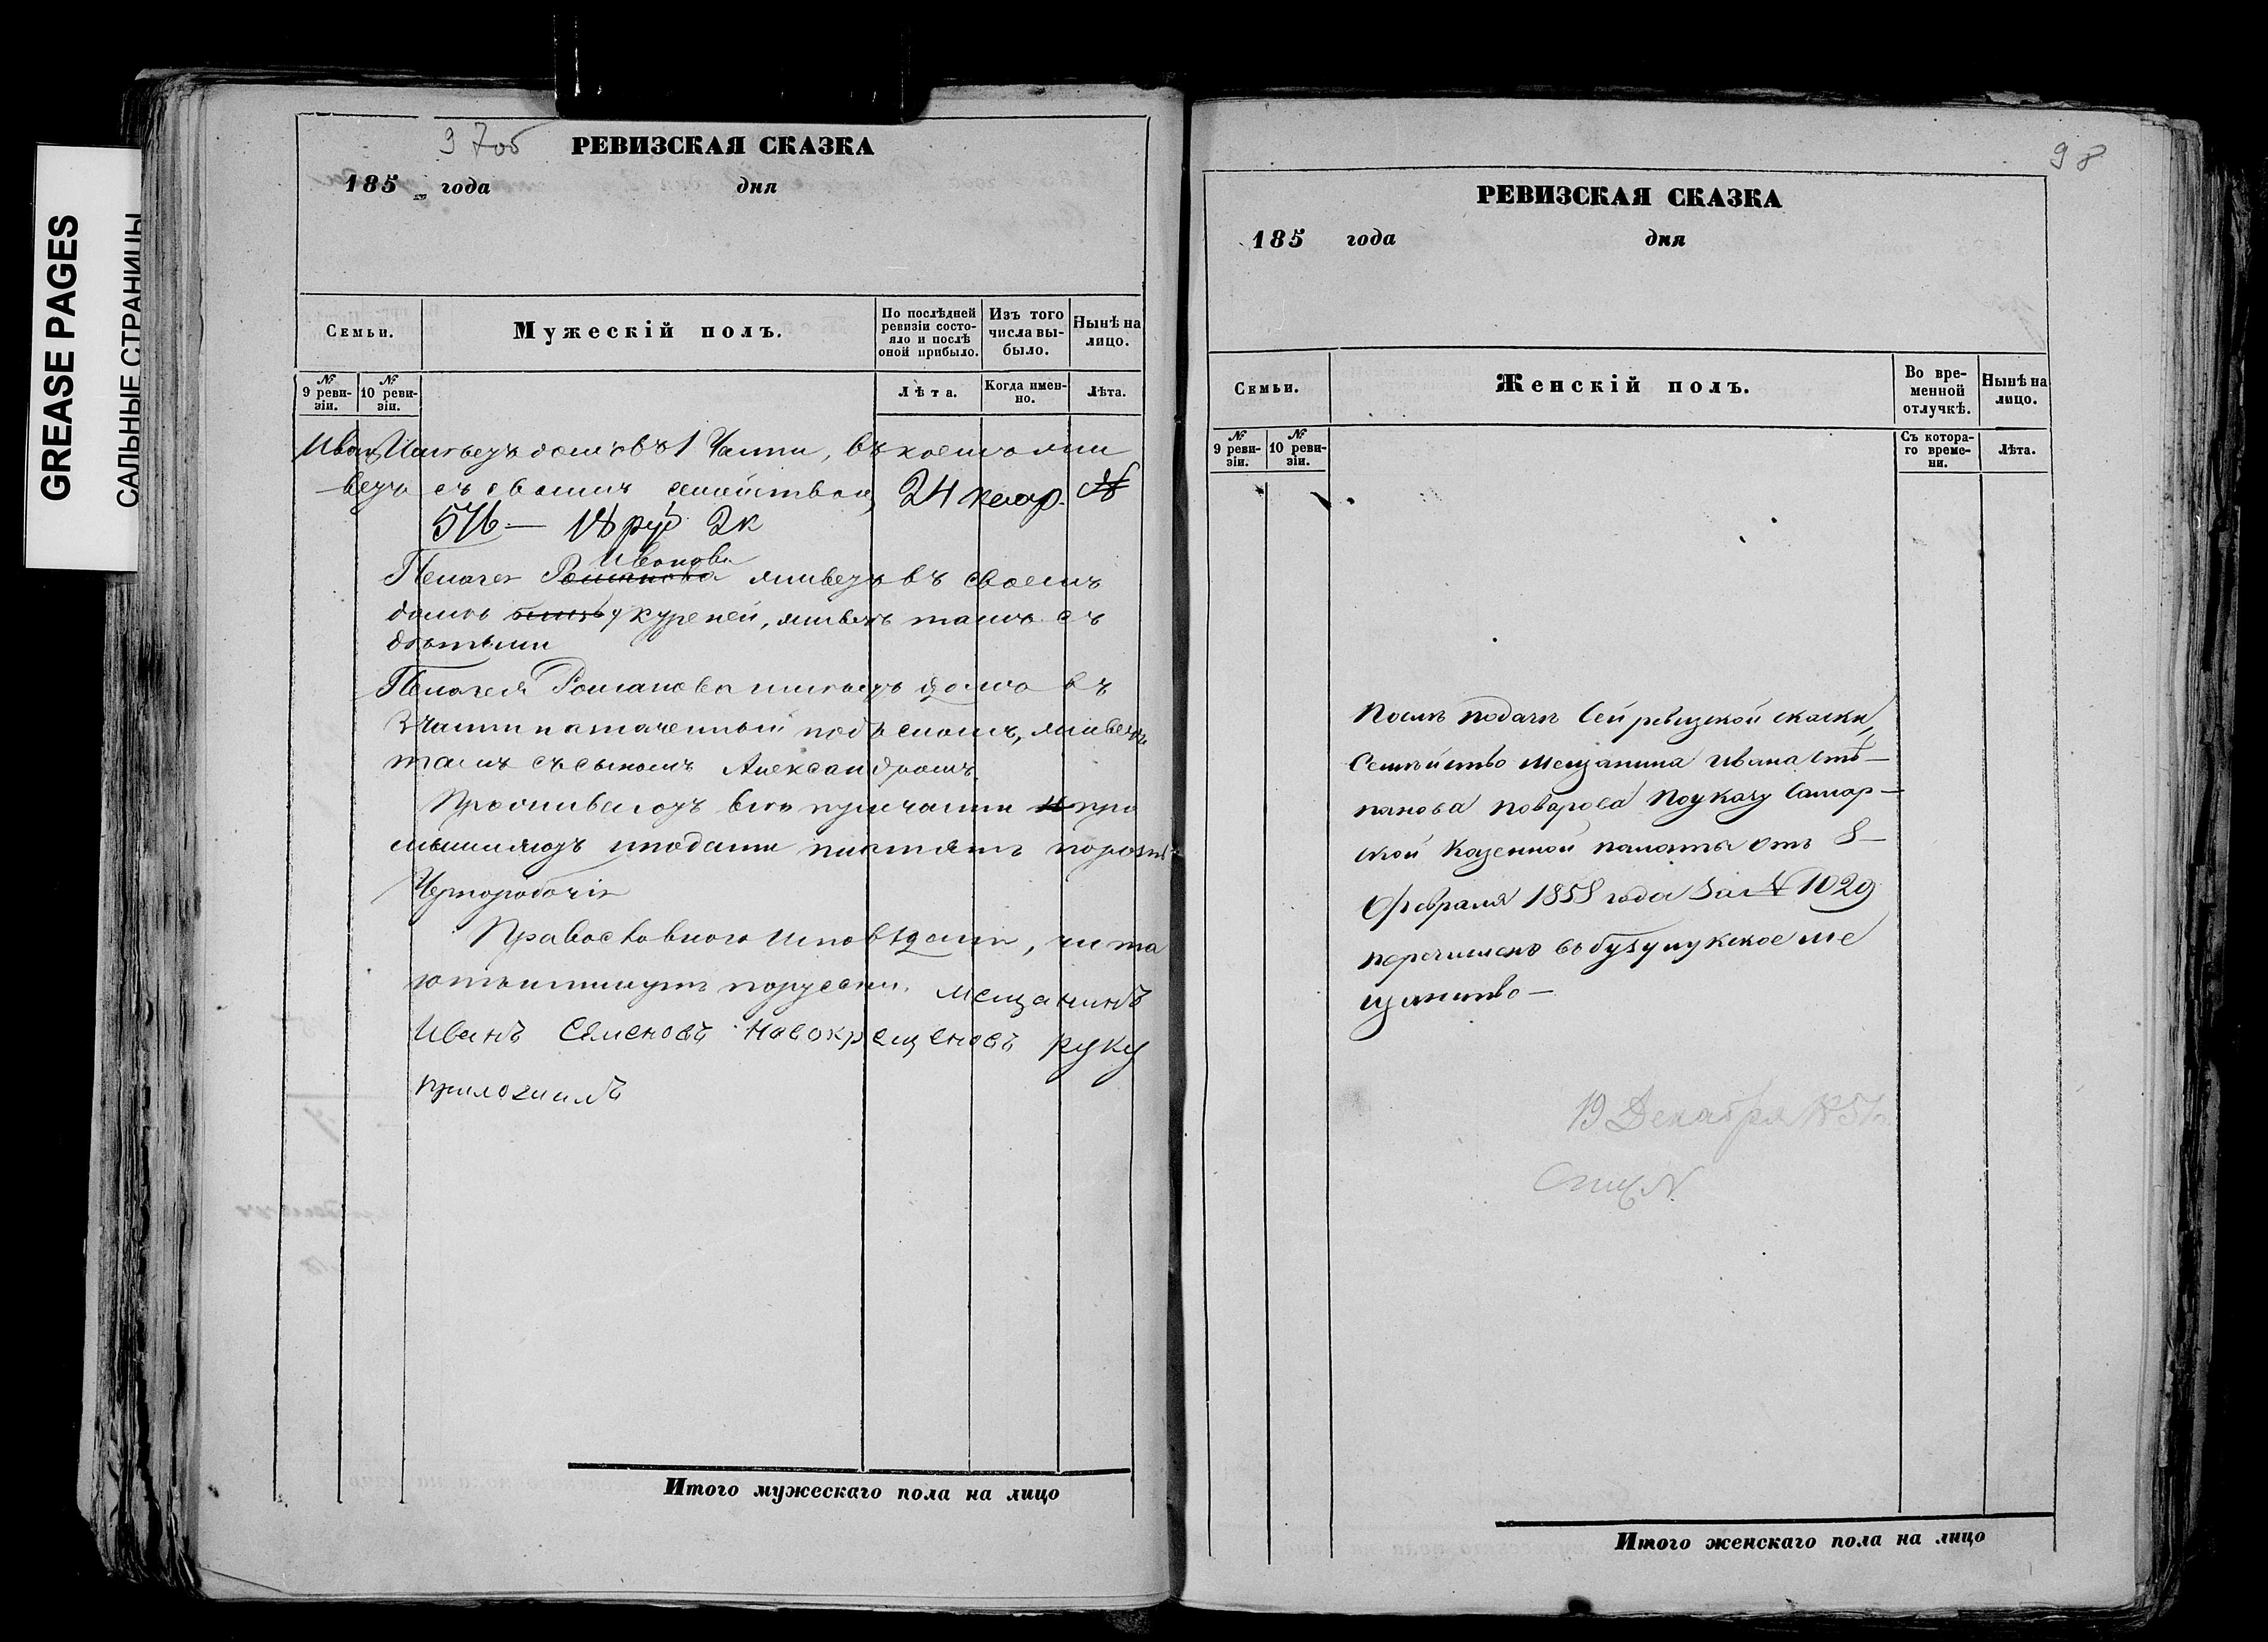 GREASE PAGES
САЛЬНЫЕ СТРАНИЦЫ
97об
РЕВИЗСКАЯ СКАЗКА
185 года дня
Семьи.
Мужескій полъ.
По послѣдней ревизіи состояло и послѣ оной прибыло.
Изъ того числа выбыло.
Нынѣ на лицо.
№ 9 ревизіи.
№ 10 ревизіи.
Лѣта.
Когда именно.
Лѣта.
Иванъ Имѣетъ домъ въ 1 Части, въ коемъ и жи
ветъ съ своимъ семействомъ, 24 квар. №
576 — руб 2к
Иванова
Пелагея Романова живетъ въ своемъ
домѣ у куреней, живетъ тамъ съ
дѣтьми
Пелагея Романова имѣетъ домъ въ
3 части назначенный подъ сломъ, живетъ
тамъ съ сыномъ Александромъ
Проживаютъ въ
мышляютъ и подати платятъ
Чернорабочіе
Православного исповѣдания, чита
ютъ и пишутъ порусски. мещанинъ
Иванъ Семеновъ Новокрещеновъ руку
приложилъ
Итого мужескаго пола на лицо
98
РЕВИЗСКАЯ СКАЗКА
185 года дня
Семьи.
Женскій полъ.
Во временной отлучкѣ.
Нынѣ на лицо.
№ 9 ревизіи.
№ 10 ревизіи.
Съ котораго времени.
Лѣта.
Послѣ подачи сей ревизкой сказки,
Семѣйство мещанина Ивана Сте—
панова Поварова по указу Самар—
ской Казенной палаты отъ 8—
февраля 1858 года за № 1029
перечислено въ бузулукское ме
щанство—
19 Декабря 1857
Итого женскаго пола на лицо